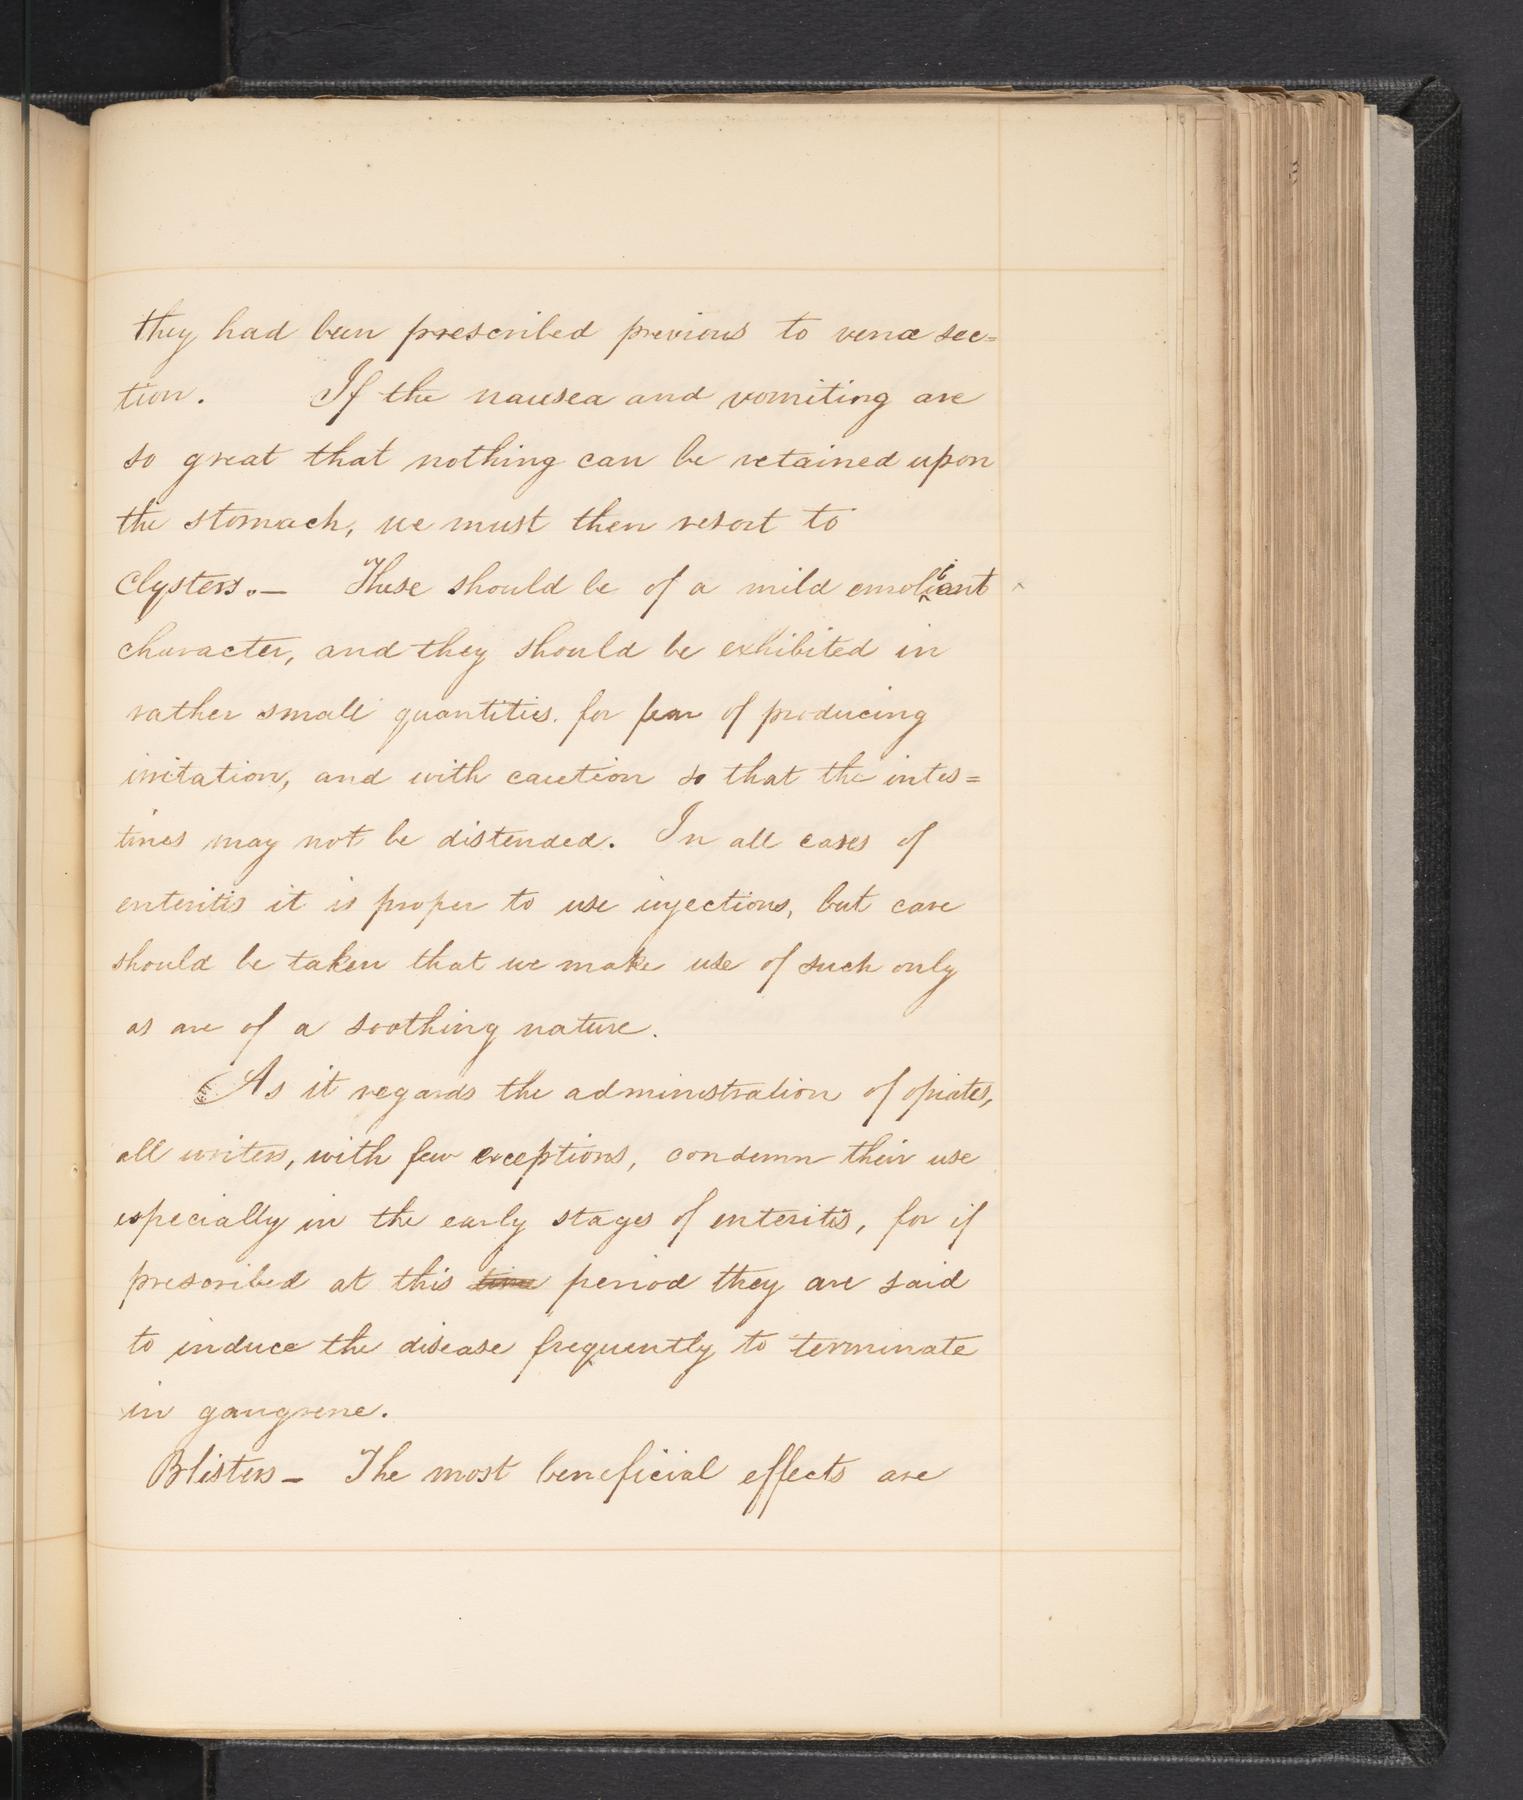 they had been prescribed previous to venæ sec=
tion. If the nausea and vomiting are
so great that nothing can be retained upon
the stomach, we must then resort to
Clysters.— These should be of a mild emolient
character, and they should be exhibited in
rather small quantities. for fear of producing
irritation, and with caution so that the intes=
tines may not be distended. In all cases of
enteritis it is proper to use injections, but care
should be taken that we make use of such only
as are of a soothing nature.
As it regards the administration of opiates,
all writers, with few exceptions, condemn their use
especially in the early stages of enteritis, for if
prescribed at this time period they are said
to induce the disease frequently to terminate
in gangrene.
Blisters — The most beneficial effects are